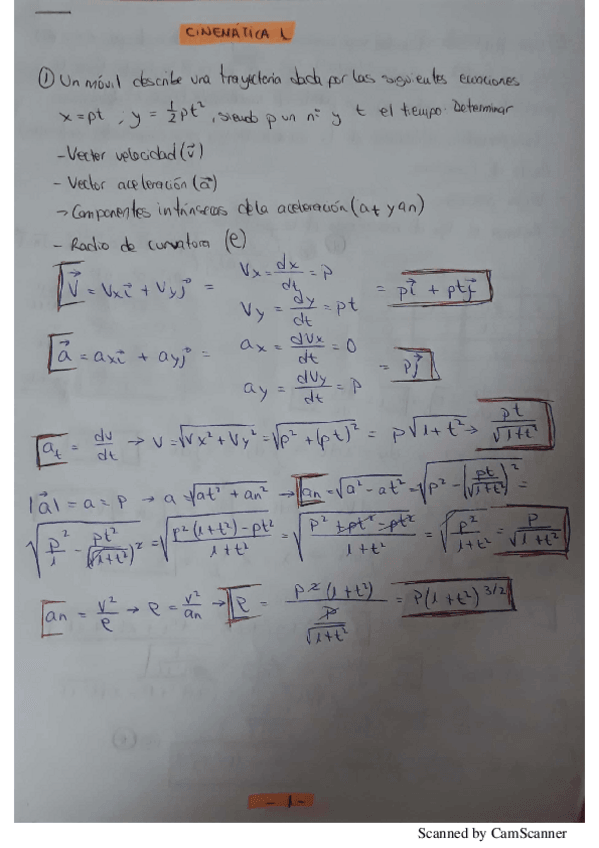 CINEMÁTICA 1
① Un móvil describe una trayectoria dada por las siguientes ecuaciones
x = pt , y = 1/2 pt² , siendo p un nº y t el tiempo. Determinar
- Vector velocidad (v⃗)
- Vector aceleración (a⃗)
-> Componentes intrínsecas de la aceleración (at y an)
- Radio de curvatura (ρ)
v⃗ = Vx i⃗ + Vy j⃗ = Vx = dx/dt = p
Vy = dy/dt = pt = p i⃗ + pt j⃗
a⃗ = ax i⃗ + ay j⃗ = ax = dVx/dt = 0
ay = dVy/dt = p = p j⃗
at = dv/dt → v = √(Vx² + Vy²) = √(p² + (pt)²) = p√(1+t²) → pt/√(1+t²)
|a⃗| = a = p → a = √(at² + an²) → an = √(a² - at²) = √(p² - (pt/√(1+t²))²) =
√(p²/1 - pt²/(√(1+t²))²) = √((p²(1+t²) - pt²)/(1+t²)) = √((p² + pt² - pt²)/(1+t²)) = √(p²/(1+t²)) = p/√(1+t²)
an = v²/ρ → ρ = v²/an → ρ = p²(1+t²)/(p/√(1+t²)) = p(1+t²)^3/2
- 1 -
Scanned by CamScanner